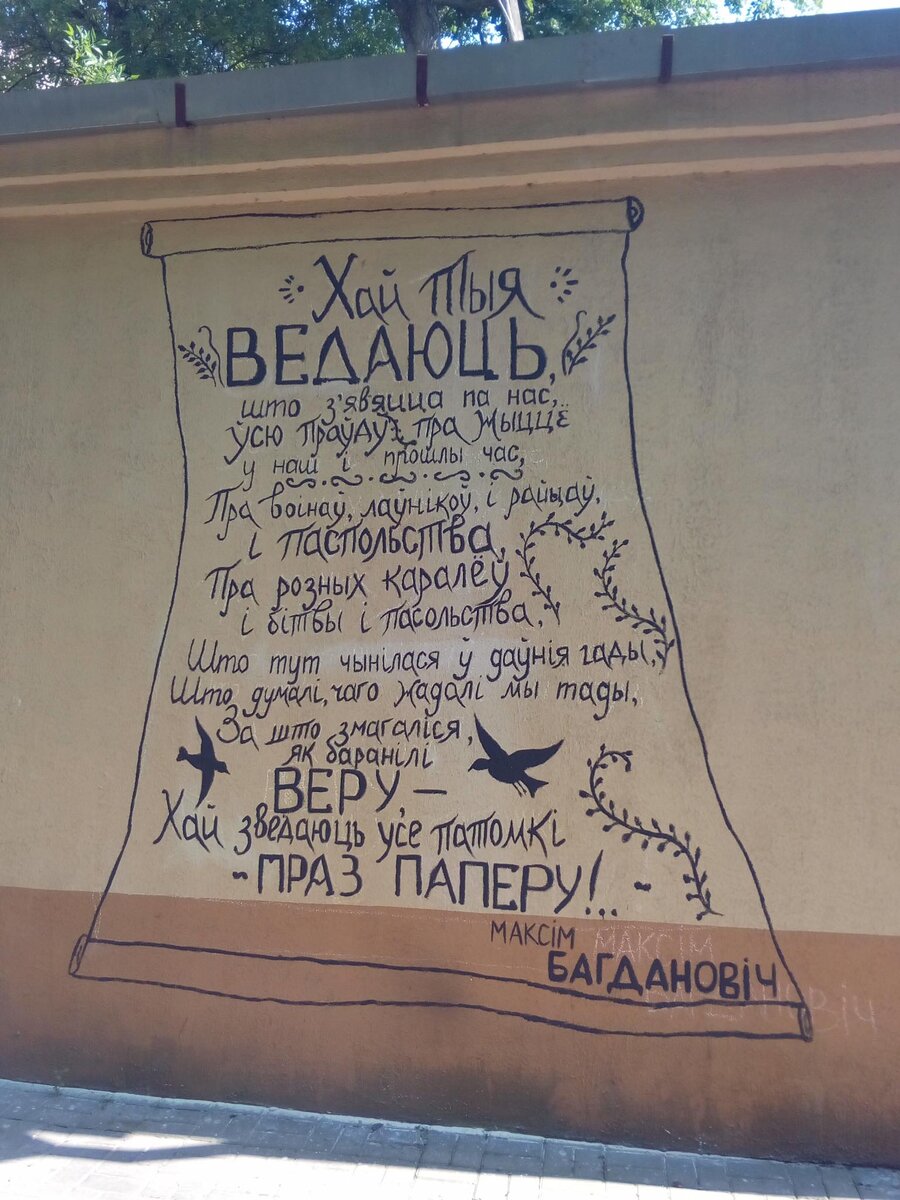 Хай тыя
ВЕДАЮЦЬ,
што з'явяцца па нас,
ўсю праўду пра жыццё
у наш і прошлы час,
Пра воінаў, лаўнікоў, і райцаў,
і паспольства,
Пра розных каралёў
і бітвы і пасольства,
Што тут чынілася ў даўнія гады,
Што думалі, чаго жадалі мы тады,
За што змагаліся,
як баранілі
ВЕРУ, –
Хай зведаюць усе патомкі
- ПРАЗ ПАПЕРУ!.. -
МАКСІМ МАКСІМ
БАГДАНОВІЧ